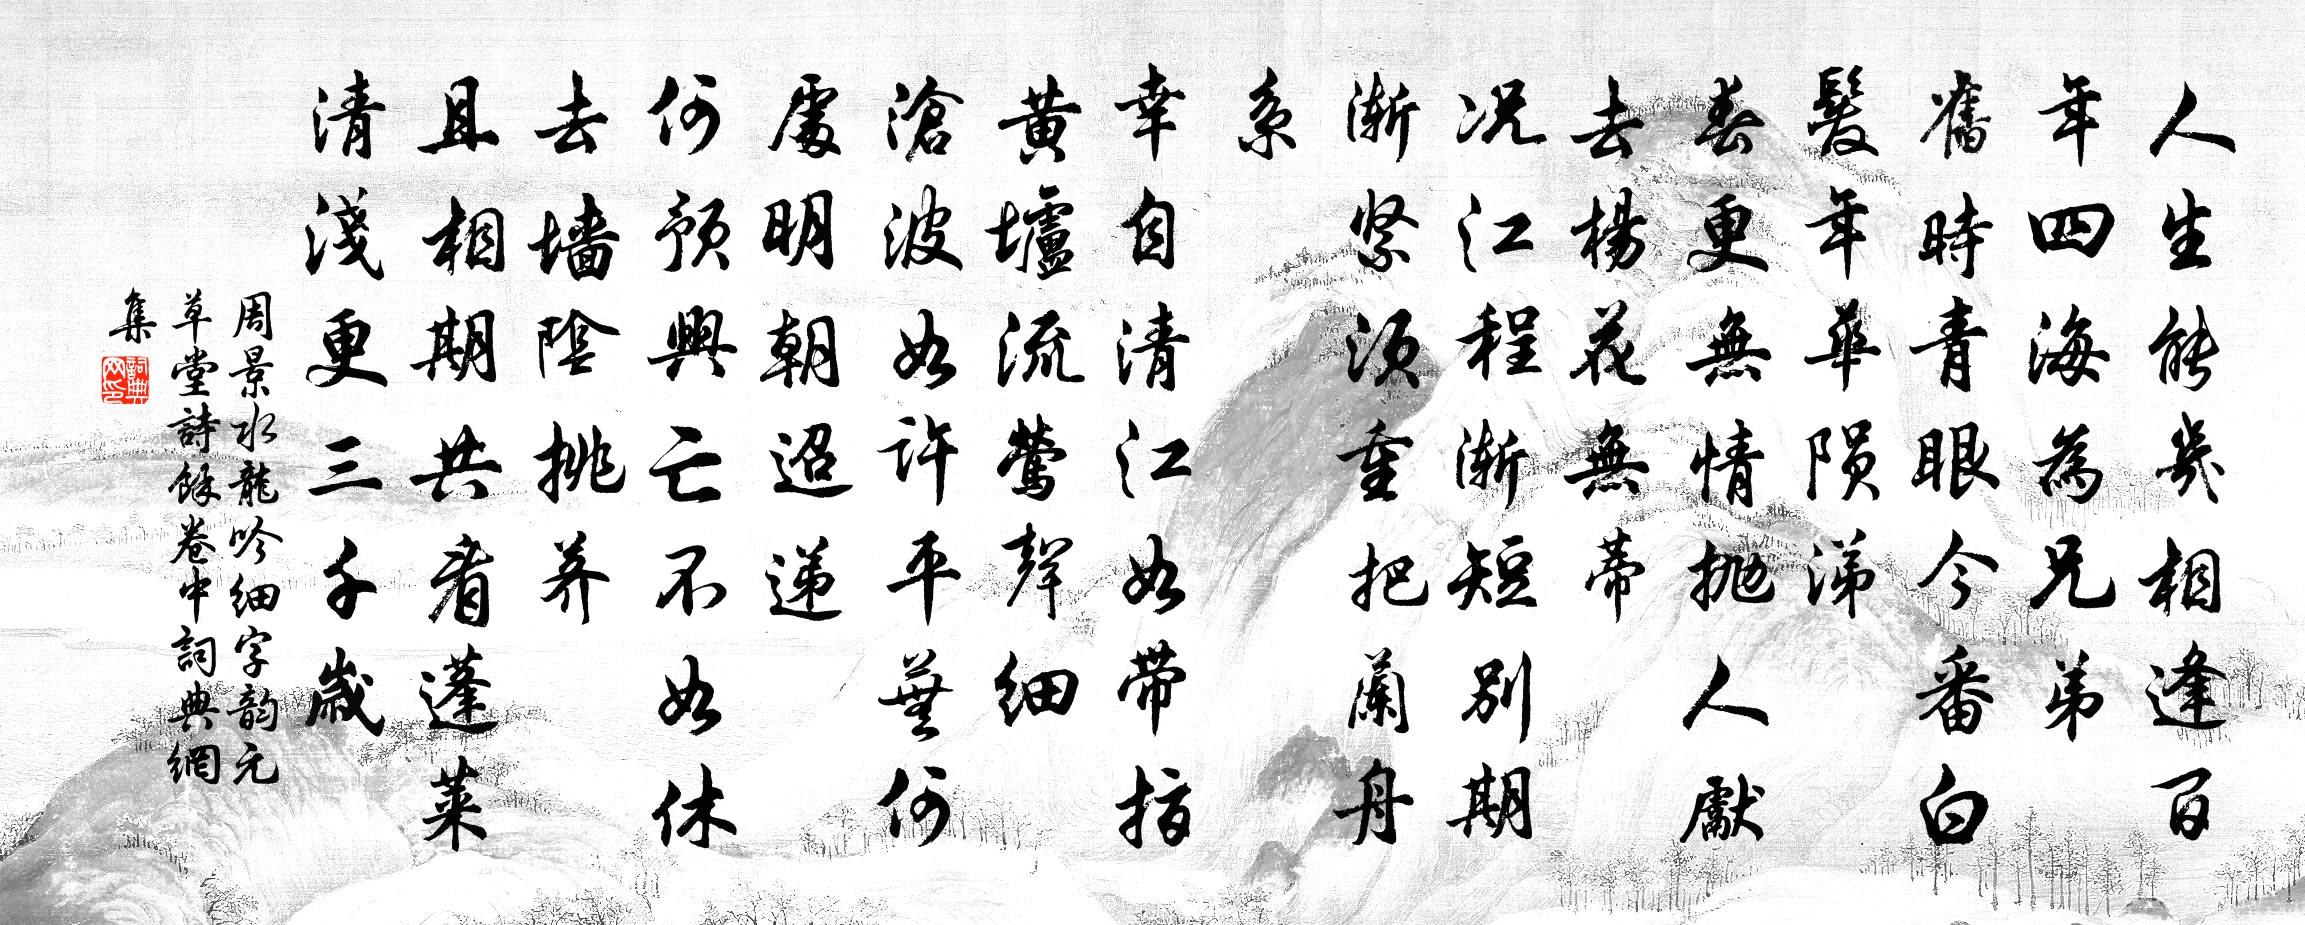 人生能幾相逢百
年四海為兄弟
舊時青眼今番白
髮年華隕涕
春更無情拋人獻
去楊花無蒂
況江程漸短別期
漸緊須重把蘭舟
系
幸自清江如帶指
黃壚流鶯聲細
滄波如許平蕪何
處明朝迢遞
何預興亡不如休
去墻陰挑荠
且相期共看蓬萊
清淺更三千歲
周景水龍吟細字韵元
草堂詩餘卷中詞典網
集
詞典
网印